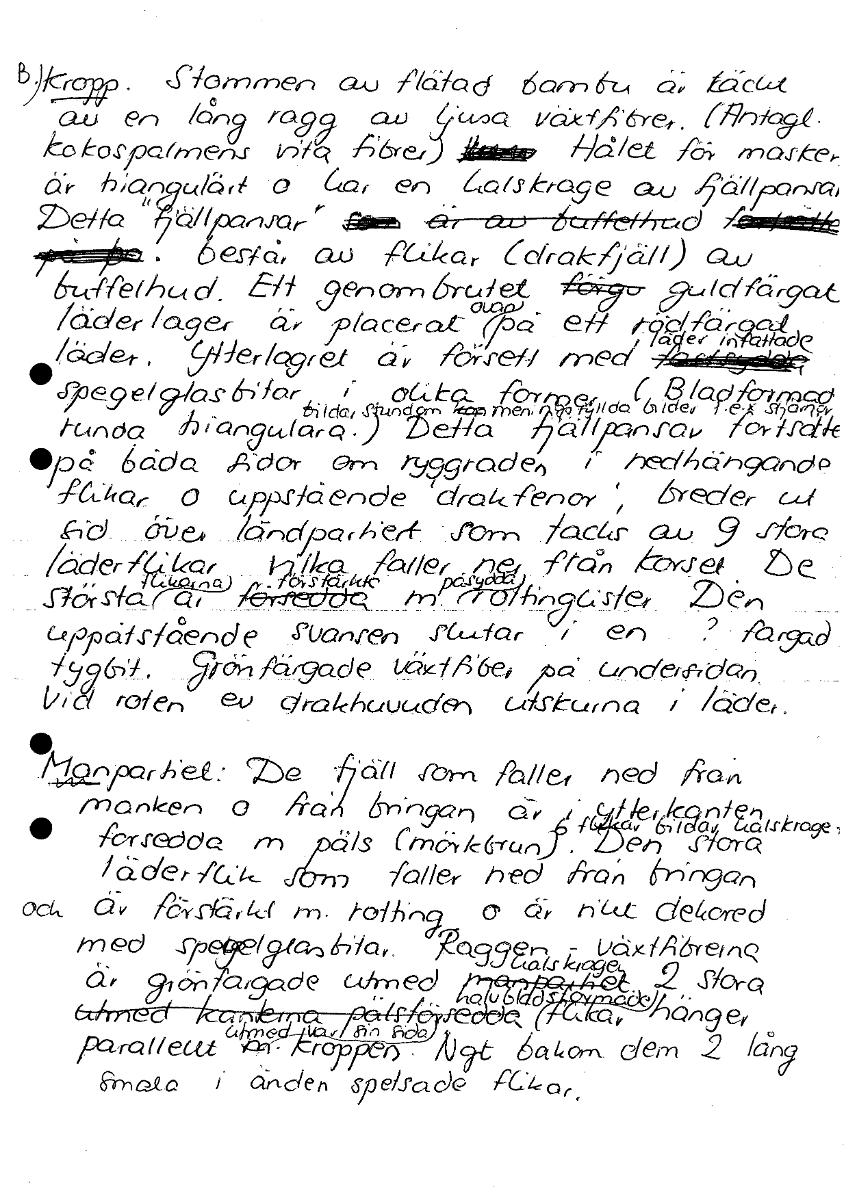 B.) Kropp. Stommen av flätad bambu är täckt
av en lång ragg av ljusa växtfibrer. (Antagl.
kokospalmens vita fibrer) Hålet för masken
är triangulärt o har en halskrage av fjällpansar
Detta "fjällpansar" är av buffelhud
består av flikar (drakfjäll) av
buffelhud. Ett genombrutet färga guldfärgat
läderlager är placerat ovan på ett rödfärgat
läder. Ytterlagret är försett med läder infattade
spegelglasbitar i olika former (Bladformad
bildar stundom meningsfyllda bilder t.ex stjärnor
runda triangulära.) Detta fjällpansar fortsätte
på båda sidor om ryggraden i nedhängande
flikar o uppstående 'drakfenor', breder ut
sid över ländpartiert som täcks av 9 stora
läderflikar vilka faller ner från korset De
största flikarna är försedda förstärkte m påsydda rottinglister Den
uppåtstående svansen slutar i en ? färgad
tygbit. Grönfärgade växtfiber på undersidan
Vid roten ev drakhuvuden utskurna i läder.
Manpartiet: De fjäll som faller ned från
manken o från bringan är i ytterkanten
försedda m päls (mörkbrun). 6 flikar bildar halskrage.
Den stora
läderflik som faller ned från bringan
och är förstärkt m. rotting o är rikt dekored
med spegelglasbitar. Raggen - växtfibrerna
är grönfärgade utmed manpartiet halskragen 2 stora
utmed kanterna pälsförsedda (halvbladsformade) flikar hänger
parallellt utmed var sin sida kroppen. Ngt bakom dem 2 lång
smala i änden spetsade flikar.